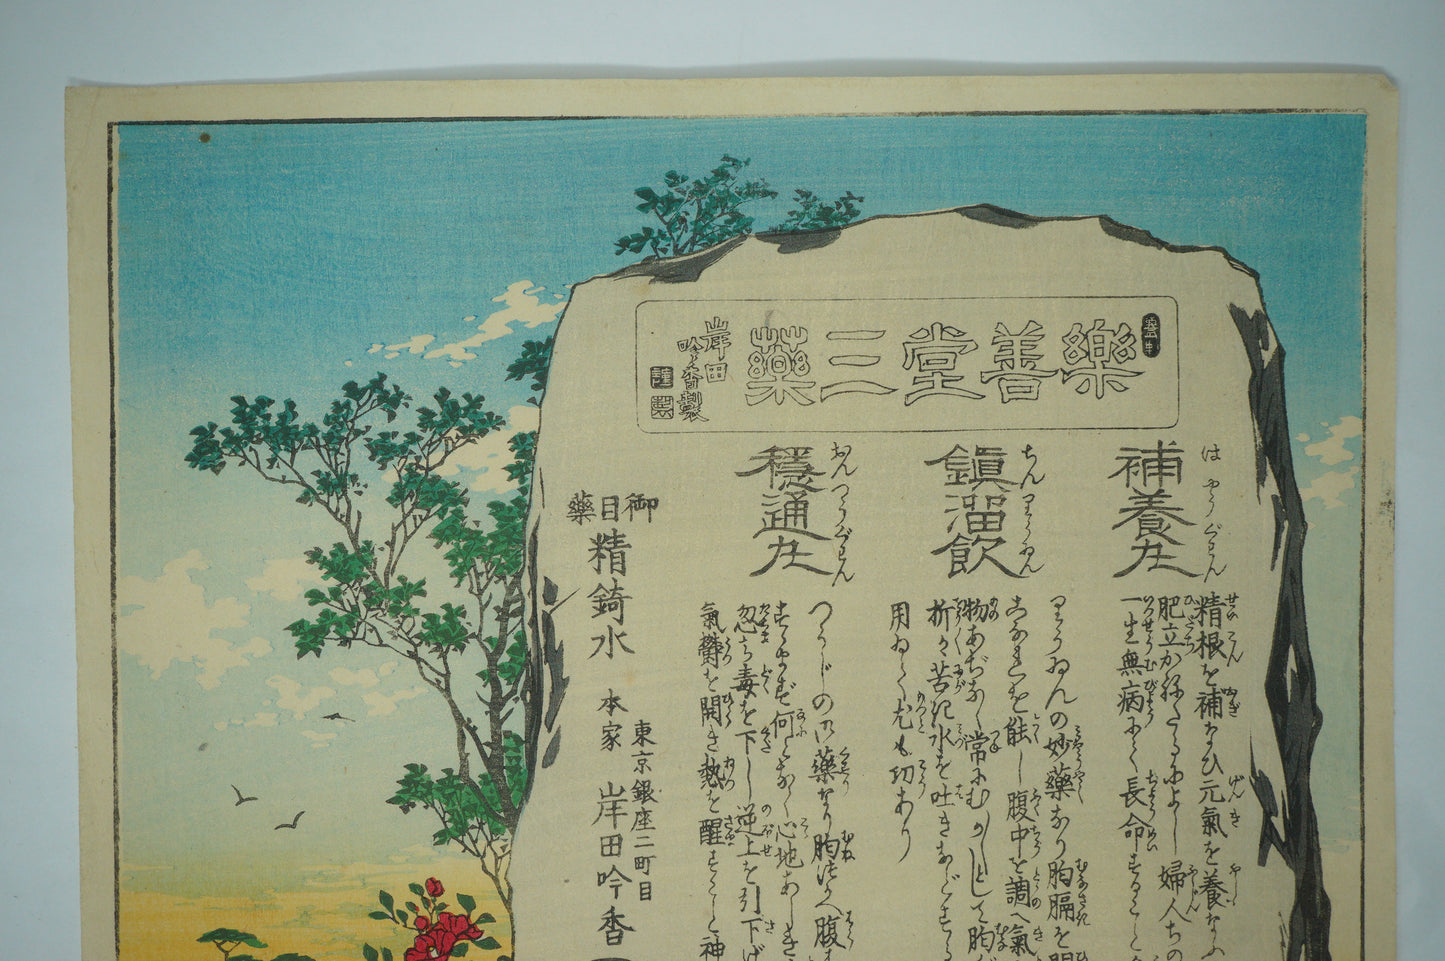 樂善堂三藥
岸田
吟香製
謹製
補養丸
はやうぐわん
精根を補なひ元氣を養なふ
肥立かねたるによし婦人ちの
一生無病にて長命すること
鎭溜飲
ちんりうゐん
りうゐんの妙藥なり胸膈を開
こなれを能し腹中を調へ氣
物あぢなく常にむかしして胸が
折々苦き水を吐きなどする
用ゐて尤も功あり
穩通丸
おんつうぐわん
つうじの乃藥なり胸つかへ腹
何となく心地あしき
忽ち毒を下し逆上を引下げ
氣欝を開き熱を醒すこと神
御目藥
精錡水
本家
東京銀座二町目
岸田吟香